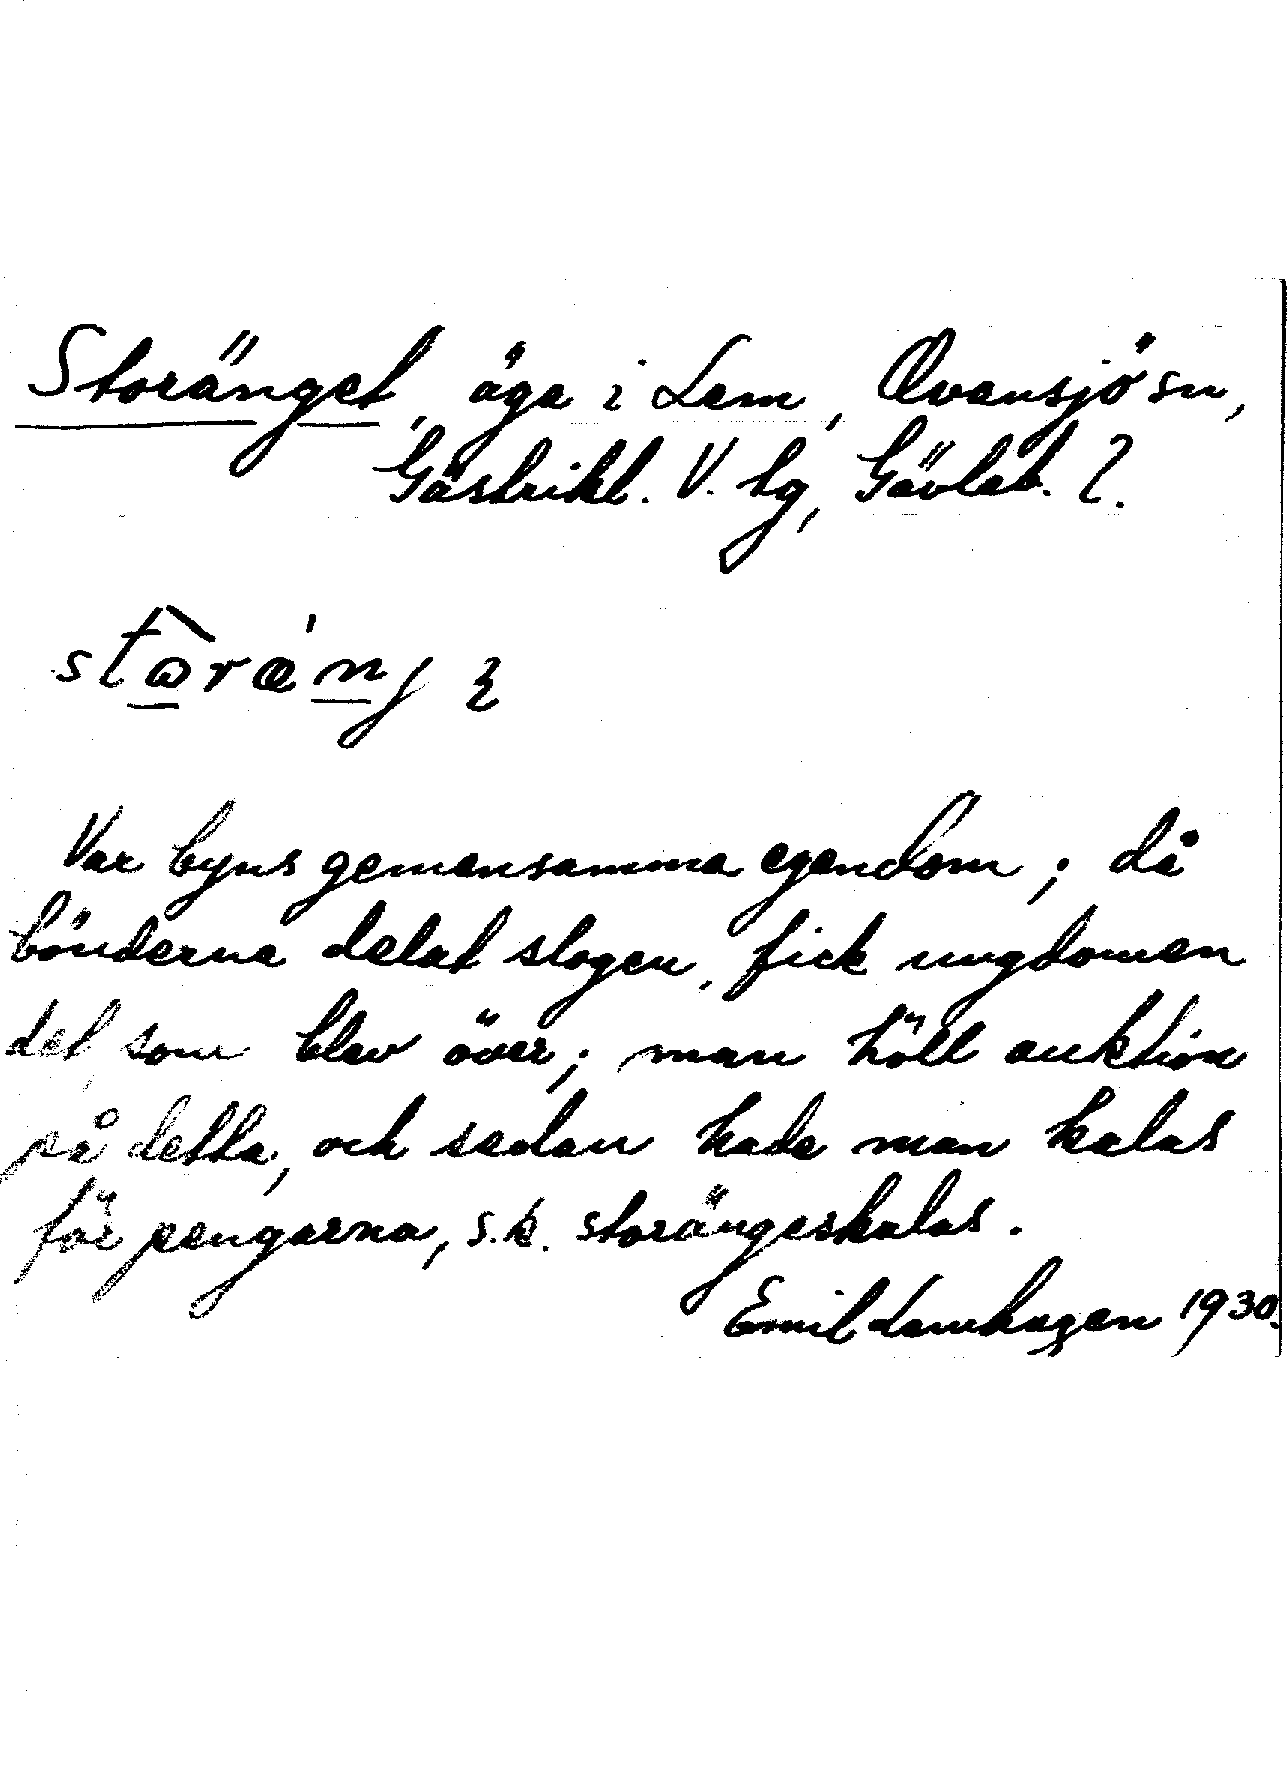 Storänget, äga i Lem, Ovansjö sn,
Gästrikl. V. tg, Gävleb. l.
Var byns gemensamma egendom; då
bönderna delat slogen, fick ungdomen
det som blev över; man höll auktion
på detta, och sedan hade man kalas
för pengarna, s.k. storängeskalas.
Emil Lamhagen 1930.